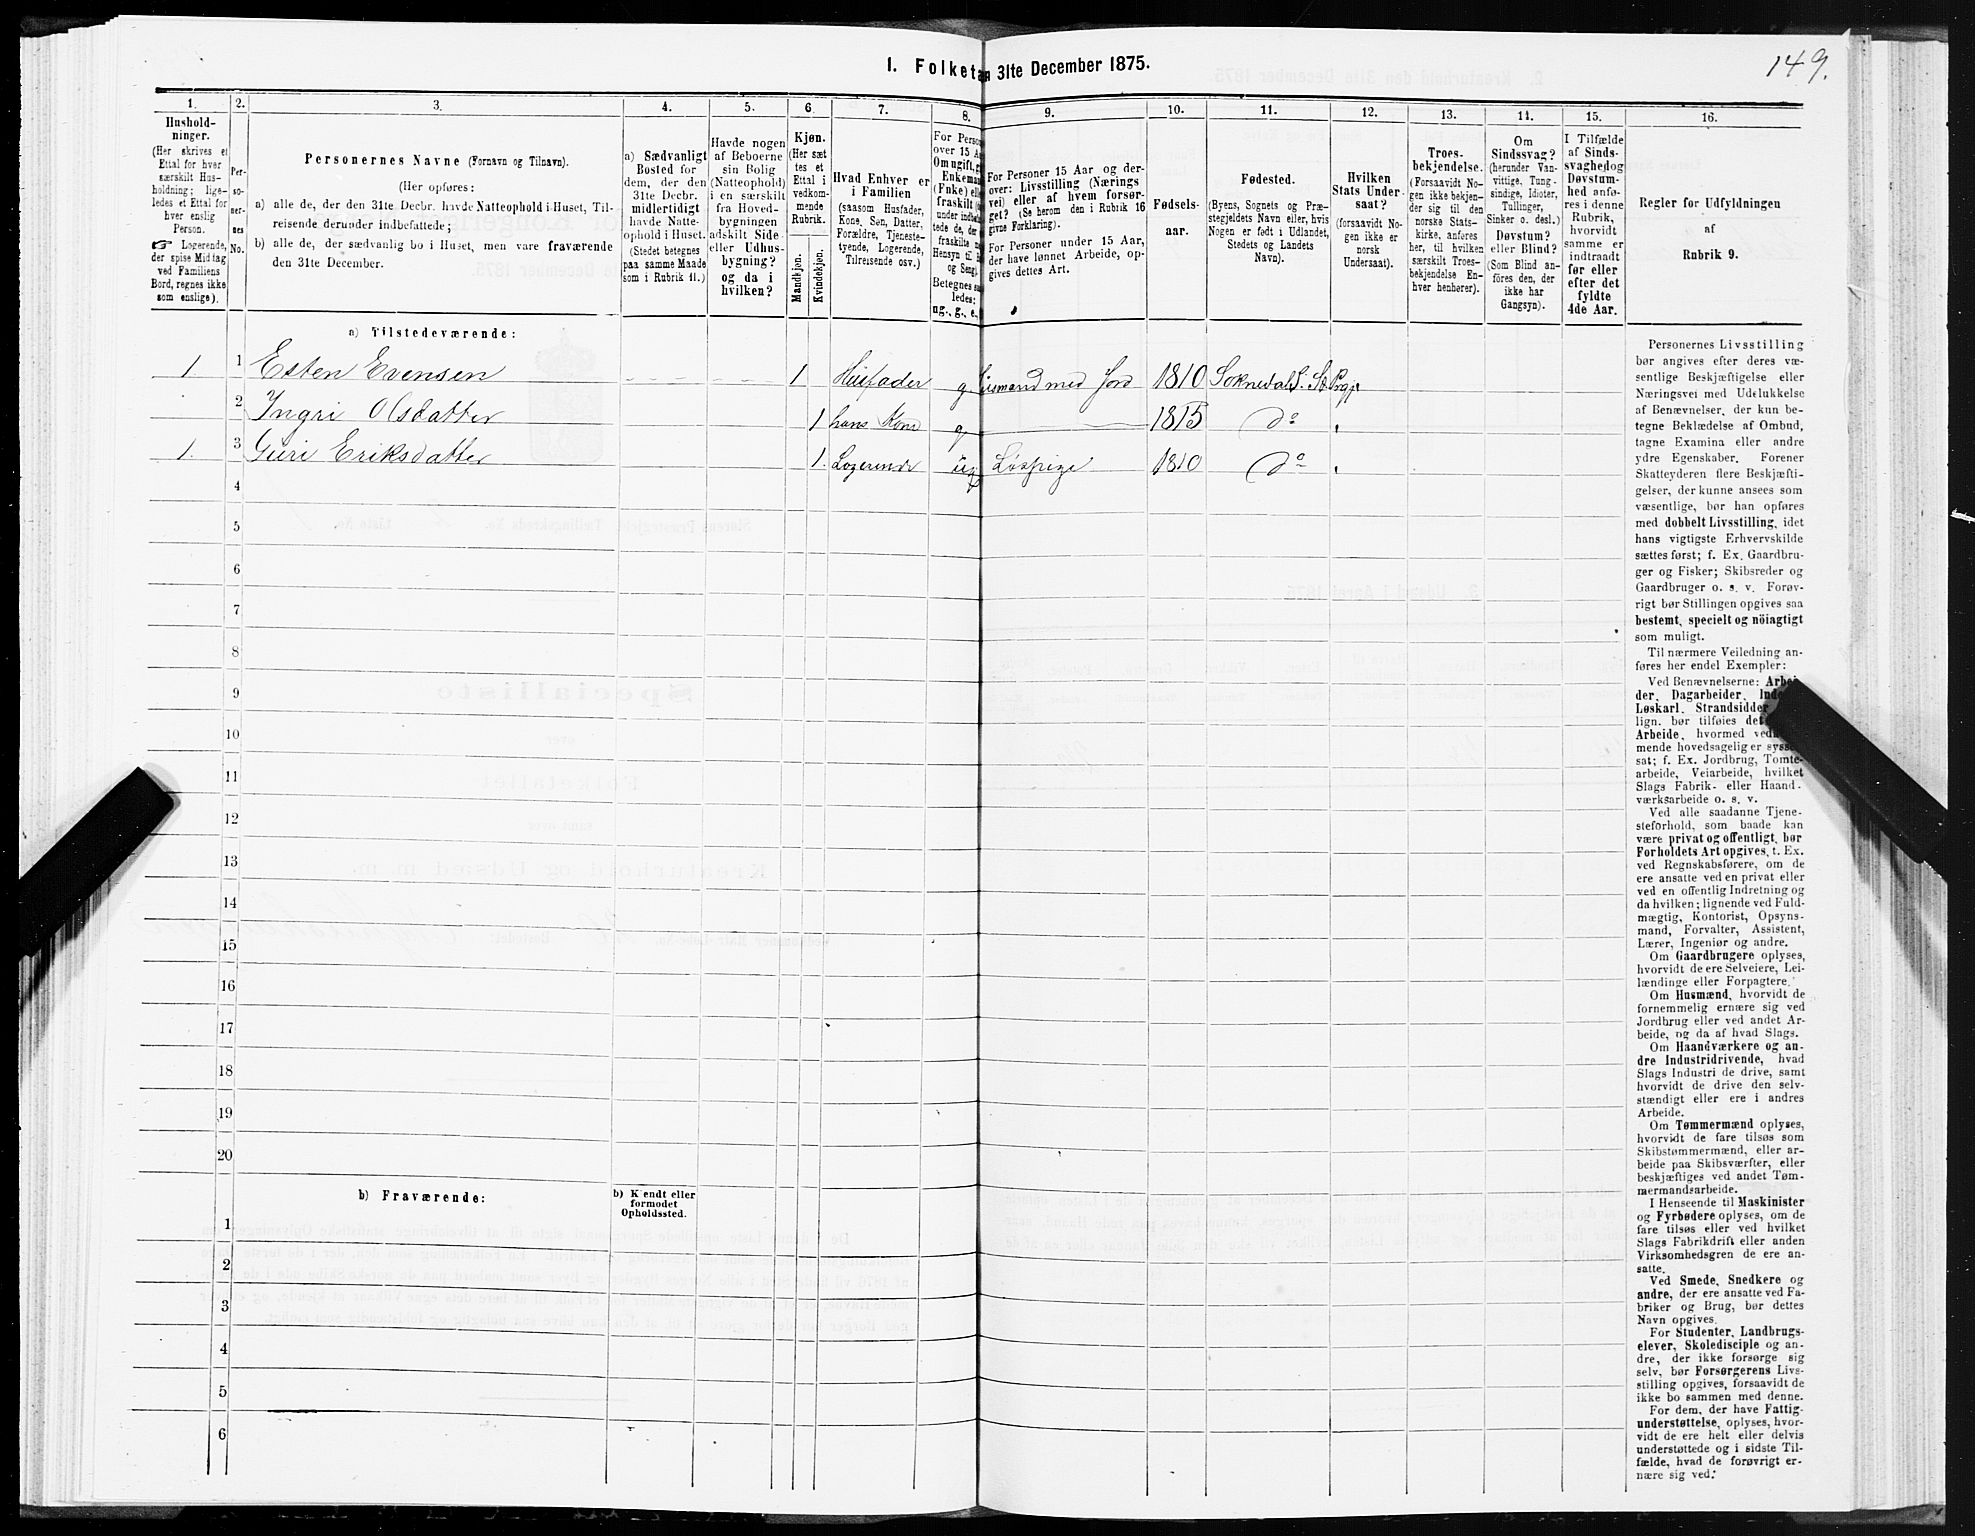 149.
I. Folketal den 31te December 1875.
1. 2. 3. 4. 5. 6. 7. 8. 9. 10. 11. 12. 13. 14. 15. 16.
Hushold-
ninger.
(Her skrives et
Ettal for hver
særskilt Hus-
holdning; lige-
ledes et Ettal for
hver enslig
Person.
☞ Logerende,
der spise Middag
ved Familiens
Bord, regnes ikke
som enslige).
Per-
so-
ner-
nes
No.
Personernes Navne (Fornavn og Tilnavn).
(Her opføres:
a) alle de, der den 31te Decbr. havde Natteophold i Huset, Til-
reisende derunder indbefattede;
b) alle de, der sædvanlig bo i Huset, men vare fraværende
den 31te December.
a) Sædvanligt
Bosted for
dem, der den
31te Decbr.
midlertidigt
havde Natte-
ophold i Huset.
(Stedet betegnes
paa samme Maade
som i Rubrik 11.)
Havde nogen
af Beboerne
sin Bolig
(Natteophold)
i en særskilt
fra Hoved-
bygningen
adskilt Side-
eller Udhus-
bygning?
og da i
hvilken?
Kjøn.
(Her sæt
tes et
Ettal i
vedkom-
mende
Rubrik.
Mandkjøn.
Kvindekjøn.
Hvad Enhver er
i Familien
(saasom Husfader,
Kone, Søn, Datter,
Forældre, Tjeneste-
tyende, Logerende,
Tilreisende osv.)
For Perso
over 15 A
Om ugift, g
Enkema
(Fnke) ell
fraskilt
under indbe
tede de, der
fraskilte
Hensyn til
og Seng).
Betegnes
ledes:
ug., g., e.,
For Personer 15 Aar og der-
over: Livsstilling (Nærings
vei) eller af hvem forsør-
get? (Se herom den i Rubrik 16
givne Forklaring).
For Personer under 15 Aar,
der have lønnet Arbeide, op-
gives dettes Art.
Fødsels-
aar.
Fødested.
(Byens, Sognets og Præ-
stegjeldets Navn eller, hvis
Nogen er født i Udlandet,
Stedets og Landets
Navn).
Hvilken
Stats Under-
saat?
(forsaavidt No-
gen ikke er
norsk
Undersaat).
Troes-
bekjendelse.
(Forsaavidt No-
gen ikke bekjen-
der sig til den
norske Stats-
kirke, anføres
her, til hvilken
særskilt Troes-
bekjendelse En-
hver henhører).
Om
Sindssvag?
(herunder Van-
vittige, Tung-
sindige, Idioter,
Tullinger,
Sinker o. desl.)
Døvstum?
eller Blind?
(Som Blind an-
føres den, der
ikke har
Gangsyn).
I Tilfælde
af Sinds-
svaghed og
Døvstum-
hed anfø-
res i denne
Rubrik,
hvorvidt
samme er
indtraadt
før eller
efter det
fyldte
4de Aar.
Regler for Udfyldningen
af
Rubrik 9.
a) Tilstedeværende:
1 1 Esten Evensen 1 Husfader g Husmand med Jord 1810 Soknedal S. St. Prgj
2 Ingri Olsdatter 1 hans Kone g 1815 do
1 3 Guri Eriksdatter 1. Logerende ug Løspige 1810 do
4
5
6
7
8
9
10
11
12
13
14
15
16
17
18
19
20
b) Fraværende:
b) Kjendt eller
formodet
Opholdssted.
1
2
3
4
5
6
Personernes Livsstilling
bør angives efter deres væ-
sentlige Beskjæftigelse eller
Næringsvei med Udelukkelse
af Benævnelser, der kun be-
tegne Beklædelse af Ombud,
tagne Examina eller andre
ydre Egenskaber. Forener
Skatteyderen flere Beskjæfti-
gelser, der kunne ansees som
væsentlige, bør han opføres
med dobbelt Livsstilling, idet
hans vigtigste Erhvervskilde
sættes først; f. Ex. Gaardbru-
ger og Fisker; Skibsreder og
Gaardbruger o. s. v. Forøv-
rigt bør Stillingen opgives saa
bestemt, specielt og nöiagtigt
som muligt.
Til nærmere Veiledning an-
føres her endel Exempler:
Ved Benævnelserne: Arbei-
der, Dagarbeider, Inde
Løskarl, Strandsidder
lign. bør tilføies det
Arbeide, hvormed ved
mende hovedsagelig er sysse
sat; f. Ex. Jordbrug, Tomte-
arbeide, Veiarbeide, hvilket
Slags Fabrik- eller Haand-
værksarbeide o. s. v.
Ved alle saadanne Tjene-
steforhold, som baade kan
være privat og offentligt, bør
Forholdets Art opgives, t. Ex.
ved Regnskabsførere, om de
ere ansatte ved en privat eller
ved en offentlig Indretning og
da hvilken; lignende ved Fuld-
mægtig, Kontorist, Opsyns-
mand, Forvalter, Assistent,
Lærer, Ingeniør og andre.
Om Gaardbrugere oplyses,
hvorvidt de ere Selveiere, Lei-
lændinge eller Forpagtere.
Om Husmænd, hvorvidt de
fornemmelig ernære sig ved
Jordbrug eller ved andet Ar-
beide, og da af hvad Slags.
Om Haandværkere og an-
dre Industridrivende, hvad
Slags Industri de drive, samt
hvorvidt de drive den selv-
stændigt eller ere i andres
Arbeide.
Om Tømmermænd oplyses,
hvorvidt de fare tilsøs som
Skibstømmermænd, eller ar-
beide paa Skibsværfter, eller
beskjæftiges ved andet Tøm-
mermandsarbeide.
I Henseende til Maskinister
og Fyrbødere oplyses, om de
fare tilsøs eller ved hvilket
Slags Fabrikdrift eller anden
Virksomhedsgren de ere an-
satte.
Ved Smede, Snedkere og
andre, der ere ansatte ved Fa-
briker og Brug, bør dettes
Navn opgives.
For Studenter, Landbrugs-
elever, Skoledisciple og an-
dre, der ikke forsørge sig
selv, bør Forsørgerens Livs-
stilling opgives, forsaavidt de
ikke bo sammen med denne.
For dem, der have Fattig-
understøttelse, oplyses, hvor-
vidt de ere helt eller delvis
understøttede og i sidste Til-
fælde, hvad de forøvrigt er-
nære sig ved.